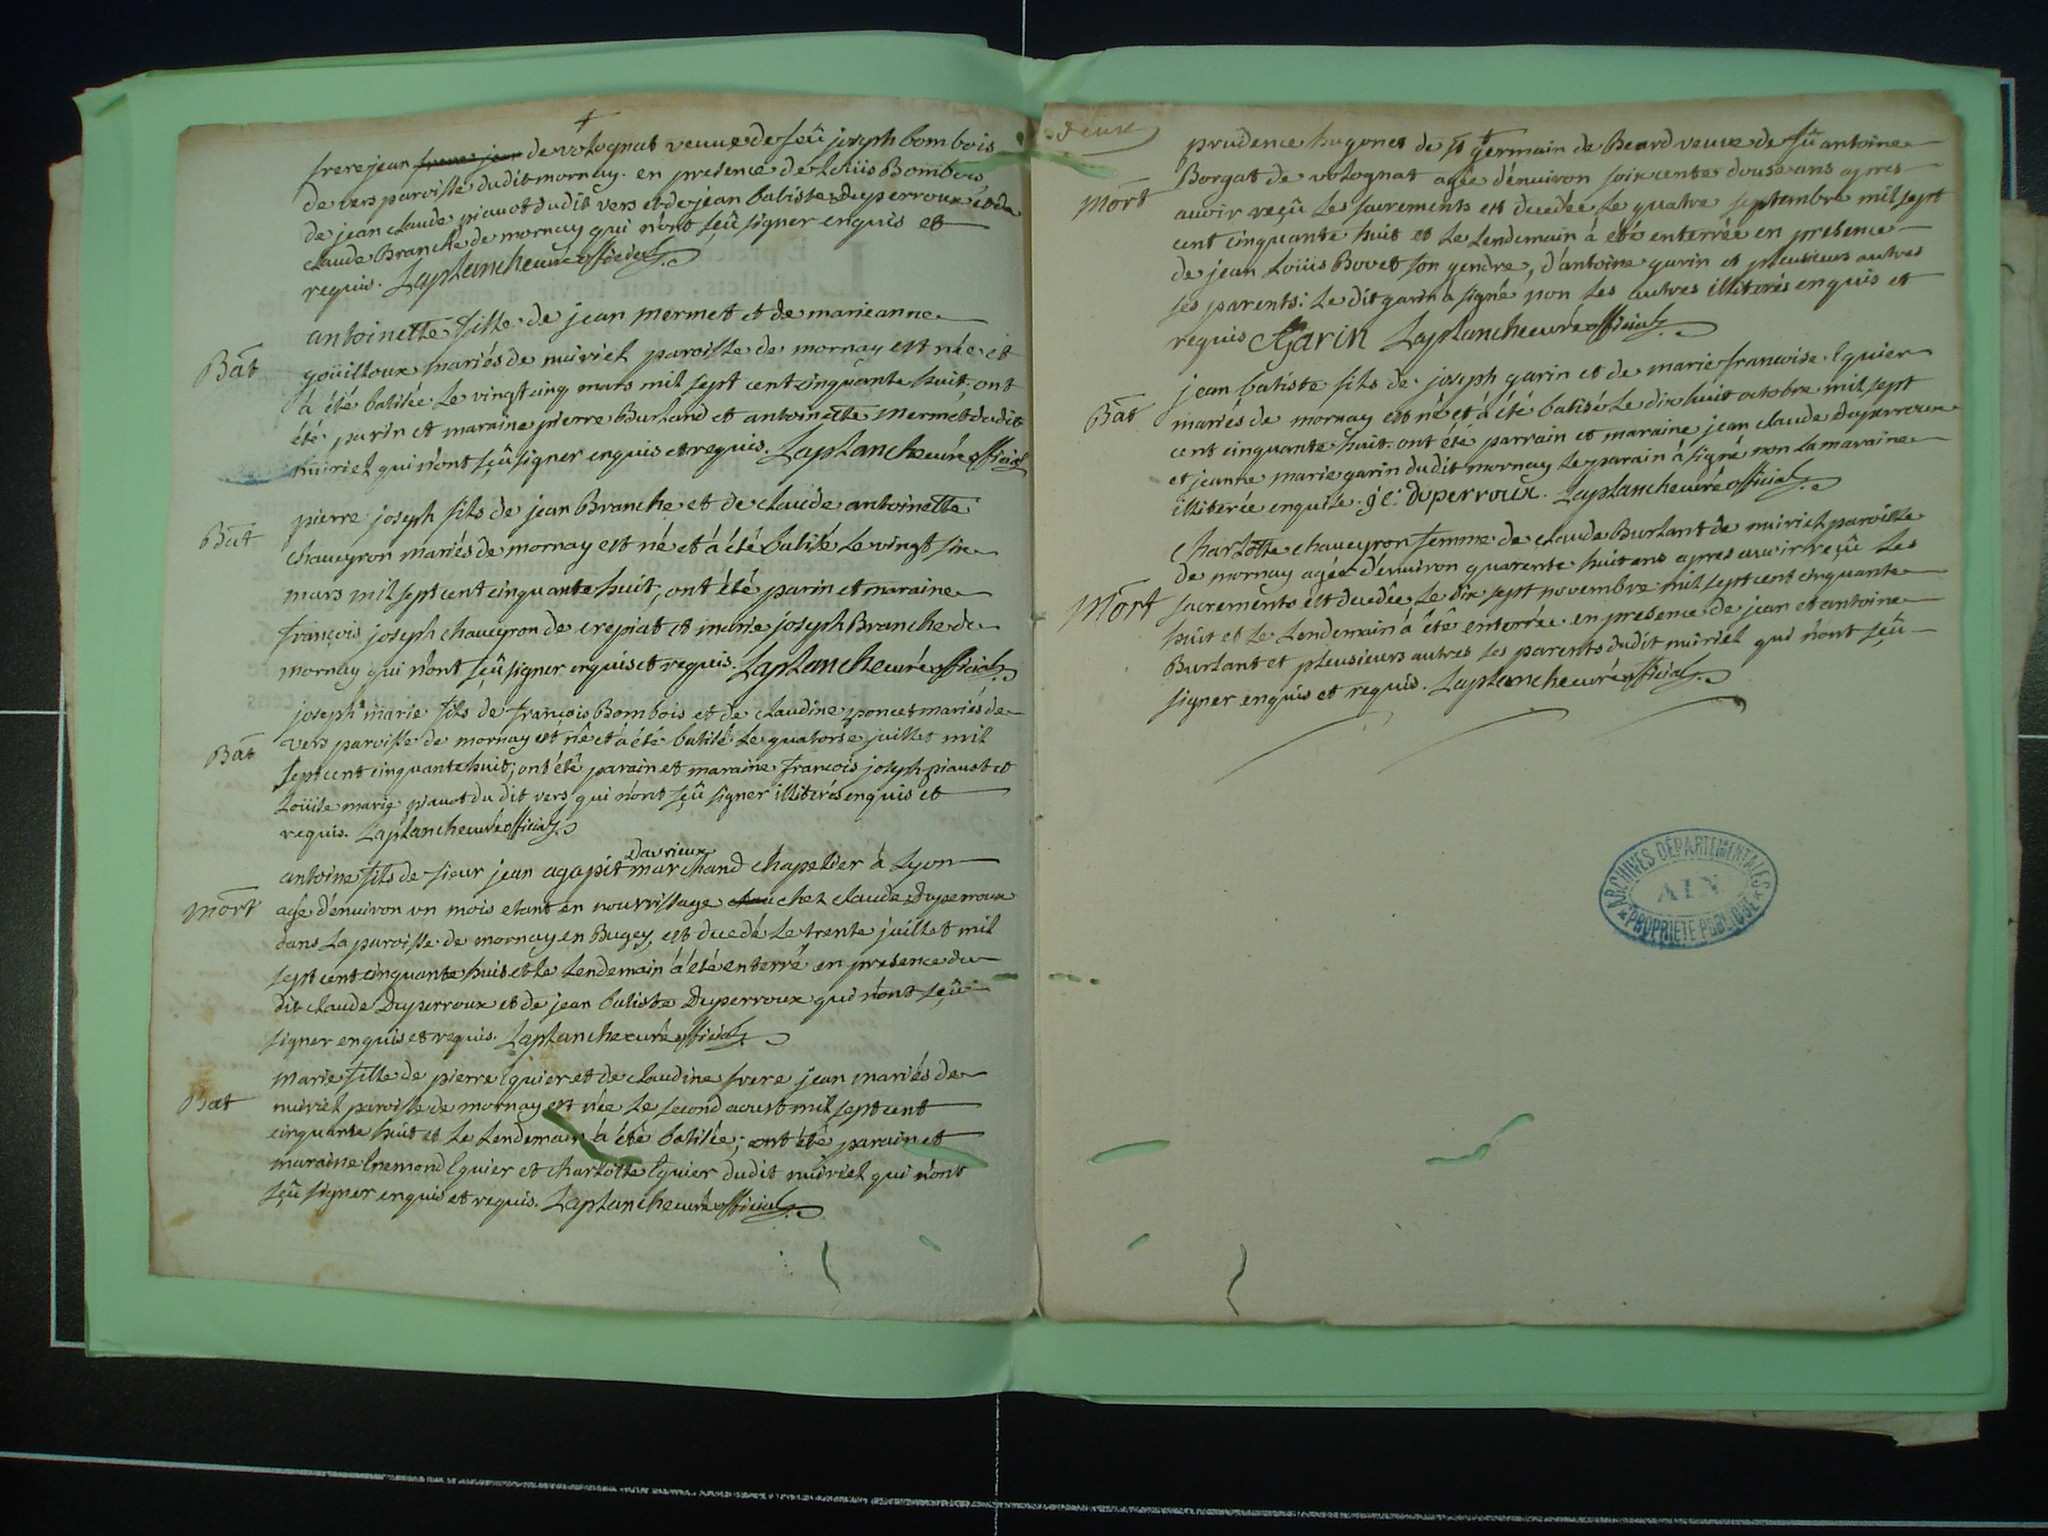 frere jean frere jean de volognat veuve de feû joseph bombois
de vers paroisse dudit mornay. en presence de Loüis Bombois
de jean claude piauot dudit vers et de jean batiste Duperroux et de
claude Branche de mornay qui n'ont sçû signer enquis et
requis. Laplanche curé official
Bat
antoinette fille de jean mermet et de marieanne
goüilloux mariés de niuriel paroisse de mornay est née et
à été batisée Le vingt cinq mars mil sept cent cinquante huit, ont
été parin et maraine pierre Burland et antoinette Mermet dudit
niuriel qui n'ont sçû signer enquis et requis. Laplanche curé official
Bat
pierre joseph fils de jean Branche et de claude antoinette
chaueyron mariés de mornay est né et à été batisé Le vingt six
mars mil sept cent cinquante huit, ont été parin et maraine
françois joseph chaueyron de crepiat et marie joseph Branche de
mornay qui n'ont sçû signer enquis et requis. Laplanche curé official
Bat
joseph marie fils de françois Bombois et de claudine poncet mariés de
vers paroisse de mornay est né et à été batisé Le quatorse juillet mil
sept cent cinquante huit; ont été parain et maraine françois joseph piauot et
Loüise marie piauot du dit vers qui n'ont sçû signer illiterés enquis et
requis. Laplanche curé official
Mort
antoine fils de sieur jean agapit Davrieux marchand chapelier à Lyon
agé d'enuiron un mois etant en nourrissage chez claude Duperroux
dans La paroisse de mornay en Bugey, est decedé Le trente juillet mil
sept cent cinquante huit et Le Lendemain à été enterré en presence du
dit claude Duperroux et de jean batiste Duperroux qui n'ont sçû
signer enquis et requis. Laplanche curé official
Bat
Marie fille de pierre Eguier et de claudine frere jean mariés de
niuriel paroisse de mornay est née Le second aoust mil sept cent
cinquante huit et Le Lendemain à été batisée; ont été parain et
maraine Enemond Eguier et charlotte Eguier dudit niuriel qui n'ont
sçû signer enquis et requis. Laplanche curé official
deux
Mort
prudence hugonet de st germain de Beard veuve de fû antoine
Borgat de volognat agée d'enuiron soixcente douse ans apres
auoir reçû Les sacrements est decedée Le quatre septembre mil sept
cent cinquante huit et Le Lendemain à eté enterrée en presence
de jean Loüis Bovet son gendre, d'antoine garin et pleusieurs autres
ses parents: Le dit garin à signé non Les autres illiterés enquis et
requis Garin Laplanche curé official
Bat
jean batiste fils de joseph garin et de marie francoise Eguier
mariés de mornay est né et à été batisé Le dix huit octobre mil sept
cent cinquante huit. ont été parrain et maraine jean claude Duperroux
et jeanne marie garin dudit mornay Le parain à signé non La maraine
illiterée enquise. j c. duperroux. Laplanche curé official
Mort
Charlotte chaueyron femme de claude Burlant de niuriel paroisse
de mornay agée d'enuiron quarente huit ans apres auoir reçû Les
sacrements est decedée Le dix sept novembre mil sept cent cinquante
huit et Le Lendemain à été enterrée en presence de jean et antoine
Burlant et pleusieurs autres ses parents dudit niuriel qui n'ont sçû
signer enquis et requis. Laplanche curé official
ARCHIVES DÉPARTEMENTALES
AIN
PROPRIÉTÉ PUBLIQUE